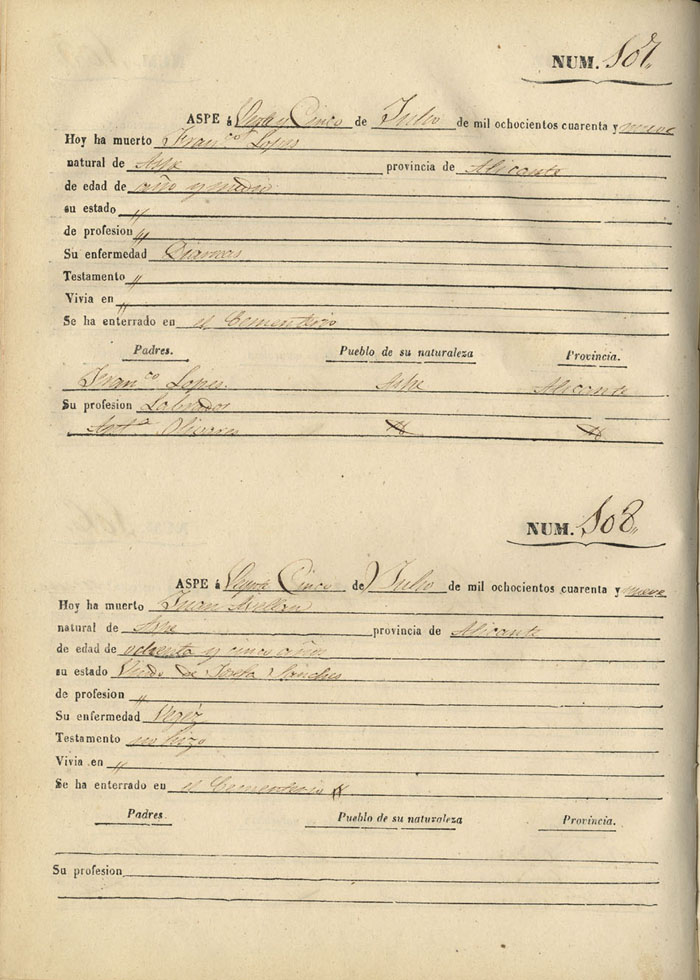 NUM. 107.
ASPE á Veinte y Cinco de Julio de mil ochocientos cuarenta y nueve
Hoy ha muerto Franco Lopes
natural de Aspe provincia de Alicante
de edad de año y medio
su estado "
de profesion "
Su enfermedad Diarreas
Testamento "
Vivia en "
Se ha enterrado en el Cementerio
Padres. Pueblo de su naturaleza Provincia.
Franco Lopes. Aspe Alicante
Su profesion Labrador
Anta Olivares
NUM. 108"
ASPE á Veynte Cinco de Julio de mil ochocientos cuarenta y nueve
Hoy ha muerto Juan
natural de Aspe provincia de Alicante
de edad de ochenta y cinco años
su estado Viudo de Josefa Sanches
de profesion "
Su enfermedad Vegéz
Testamento no hizo
Vivia en "
Se ha enterrado en el Cementerio
Padres. Pueblo de su naturaleza Provincia.
Su profesion